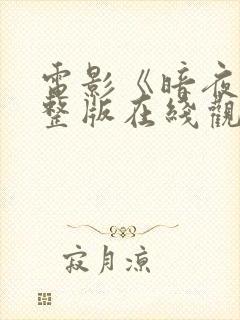 電影《暗夜
整版在綫觀
寂月凉